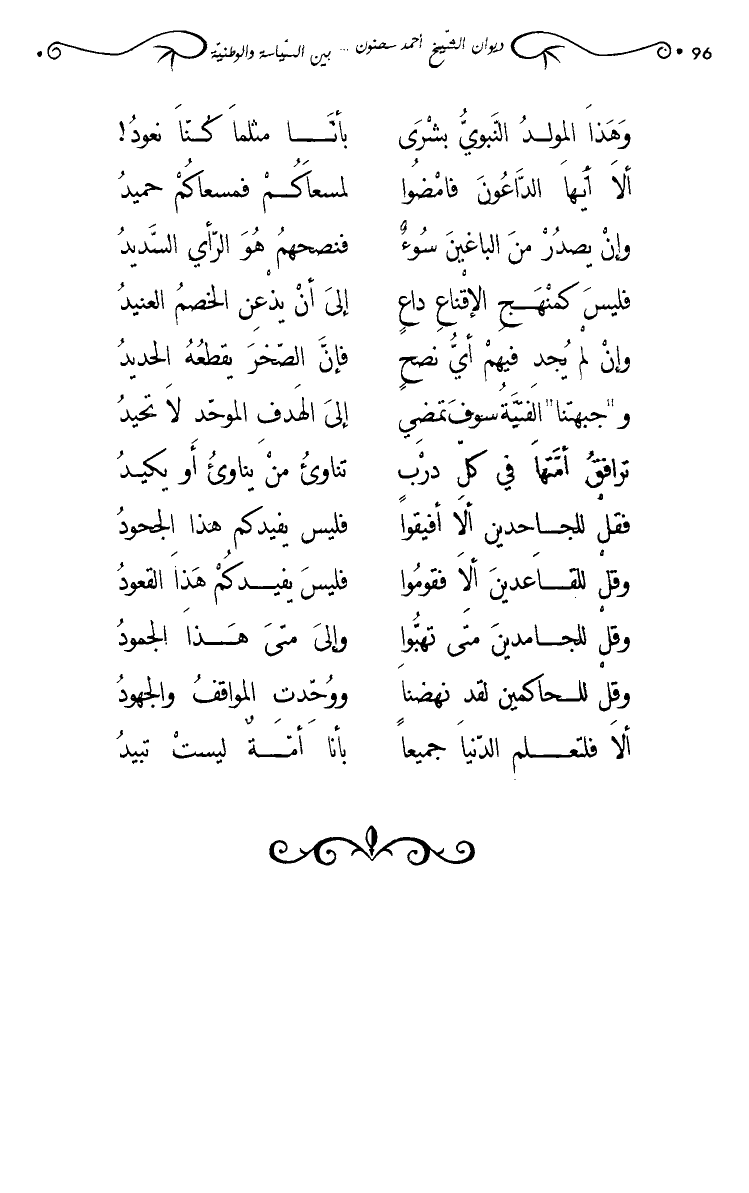 96 • ديوان الشّيخ أحمد سحنون ... بين السّياسة والوطنيّة •
وَهَذا المولدُ النّبويُّ بشْرَى بأنَّا مثلماَ كُنّاَ نعودُ!
ألاَ أيهاَ الدَّاعُونَ فامْضُوا لمسعاَكُمْ فمسعاكُمْ حميدُ
وإنْ يصدُرْ منَ الباغينَ سُوءٌ فنصحهمُ هُوَ الرّأي السَّديدُ
فليسَ كمنْهَجِ الإقْناعِ داعٍ إلىَ أنْ يذْعن الخصمُ العنيدُ
وإنْ لمْ يُجدِ فيهمْ أيُّ نصحٍ فإنَّ الصّخرَ يقطعُهُ الحديدُ
و"جبهتنا" الفتيَّةُ سوفَ تمضي إلىَ الهَدفِ الموحّد لاَ تحيدُ
ترافقُ أمَّتهاَ في كلّ درْب تناوئُ منْ يناوئُ أو يكيدُ
فقلْ للجاحدينِ ألاَ أفيقواً فليس يفيدكم هذا الجحودُ
وقلْ للقاعدينَ ألاَ فقومُوا فليسَ يفيدكُمْ هَذاَ القعودُ
وقلْ للجامدينَ متَى تهبُّوا وإلىَ متىَ هَذا الجمودُ
وقلْ للحاكمين لقد نهضنا ووُحّدت المواقفُ والجهودُ
ألاَ فلتعلمِ الدّنياَ جميعاً بأناَ أمّةٌ ليستْ تبيدُ